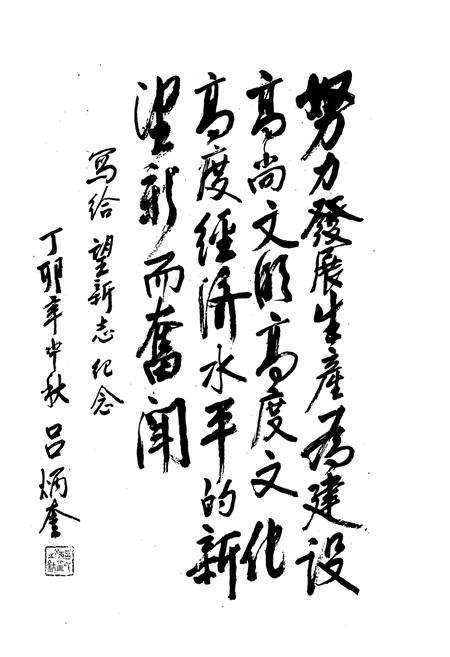 努力發展生產為建設
高尚文明高度文化
高度經濟水平的新
望新而奮鬥
寫給望新志紀念
丁卯年中秋 吕炳奎